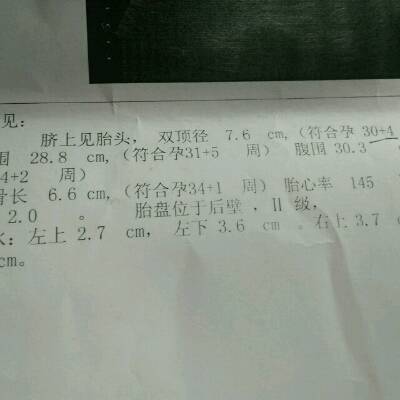 见:
脐上见胎头, 双顶径 7.6 cm,(符合孕 30+4
围 28.8 cm,(符合孕31+5 周) 腹围 30.3
4+2 周)
骨长 6.6 cm,(符合孕34+1 周) 胎心率 145
2.0 。 胎盘位于后壁,II 级,
水:左上 2.7 cm, 左下 3.6 cm 。右上 3.7 c
cm。